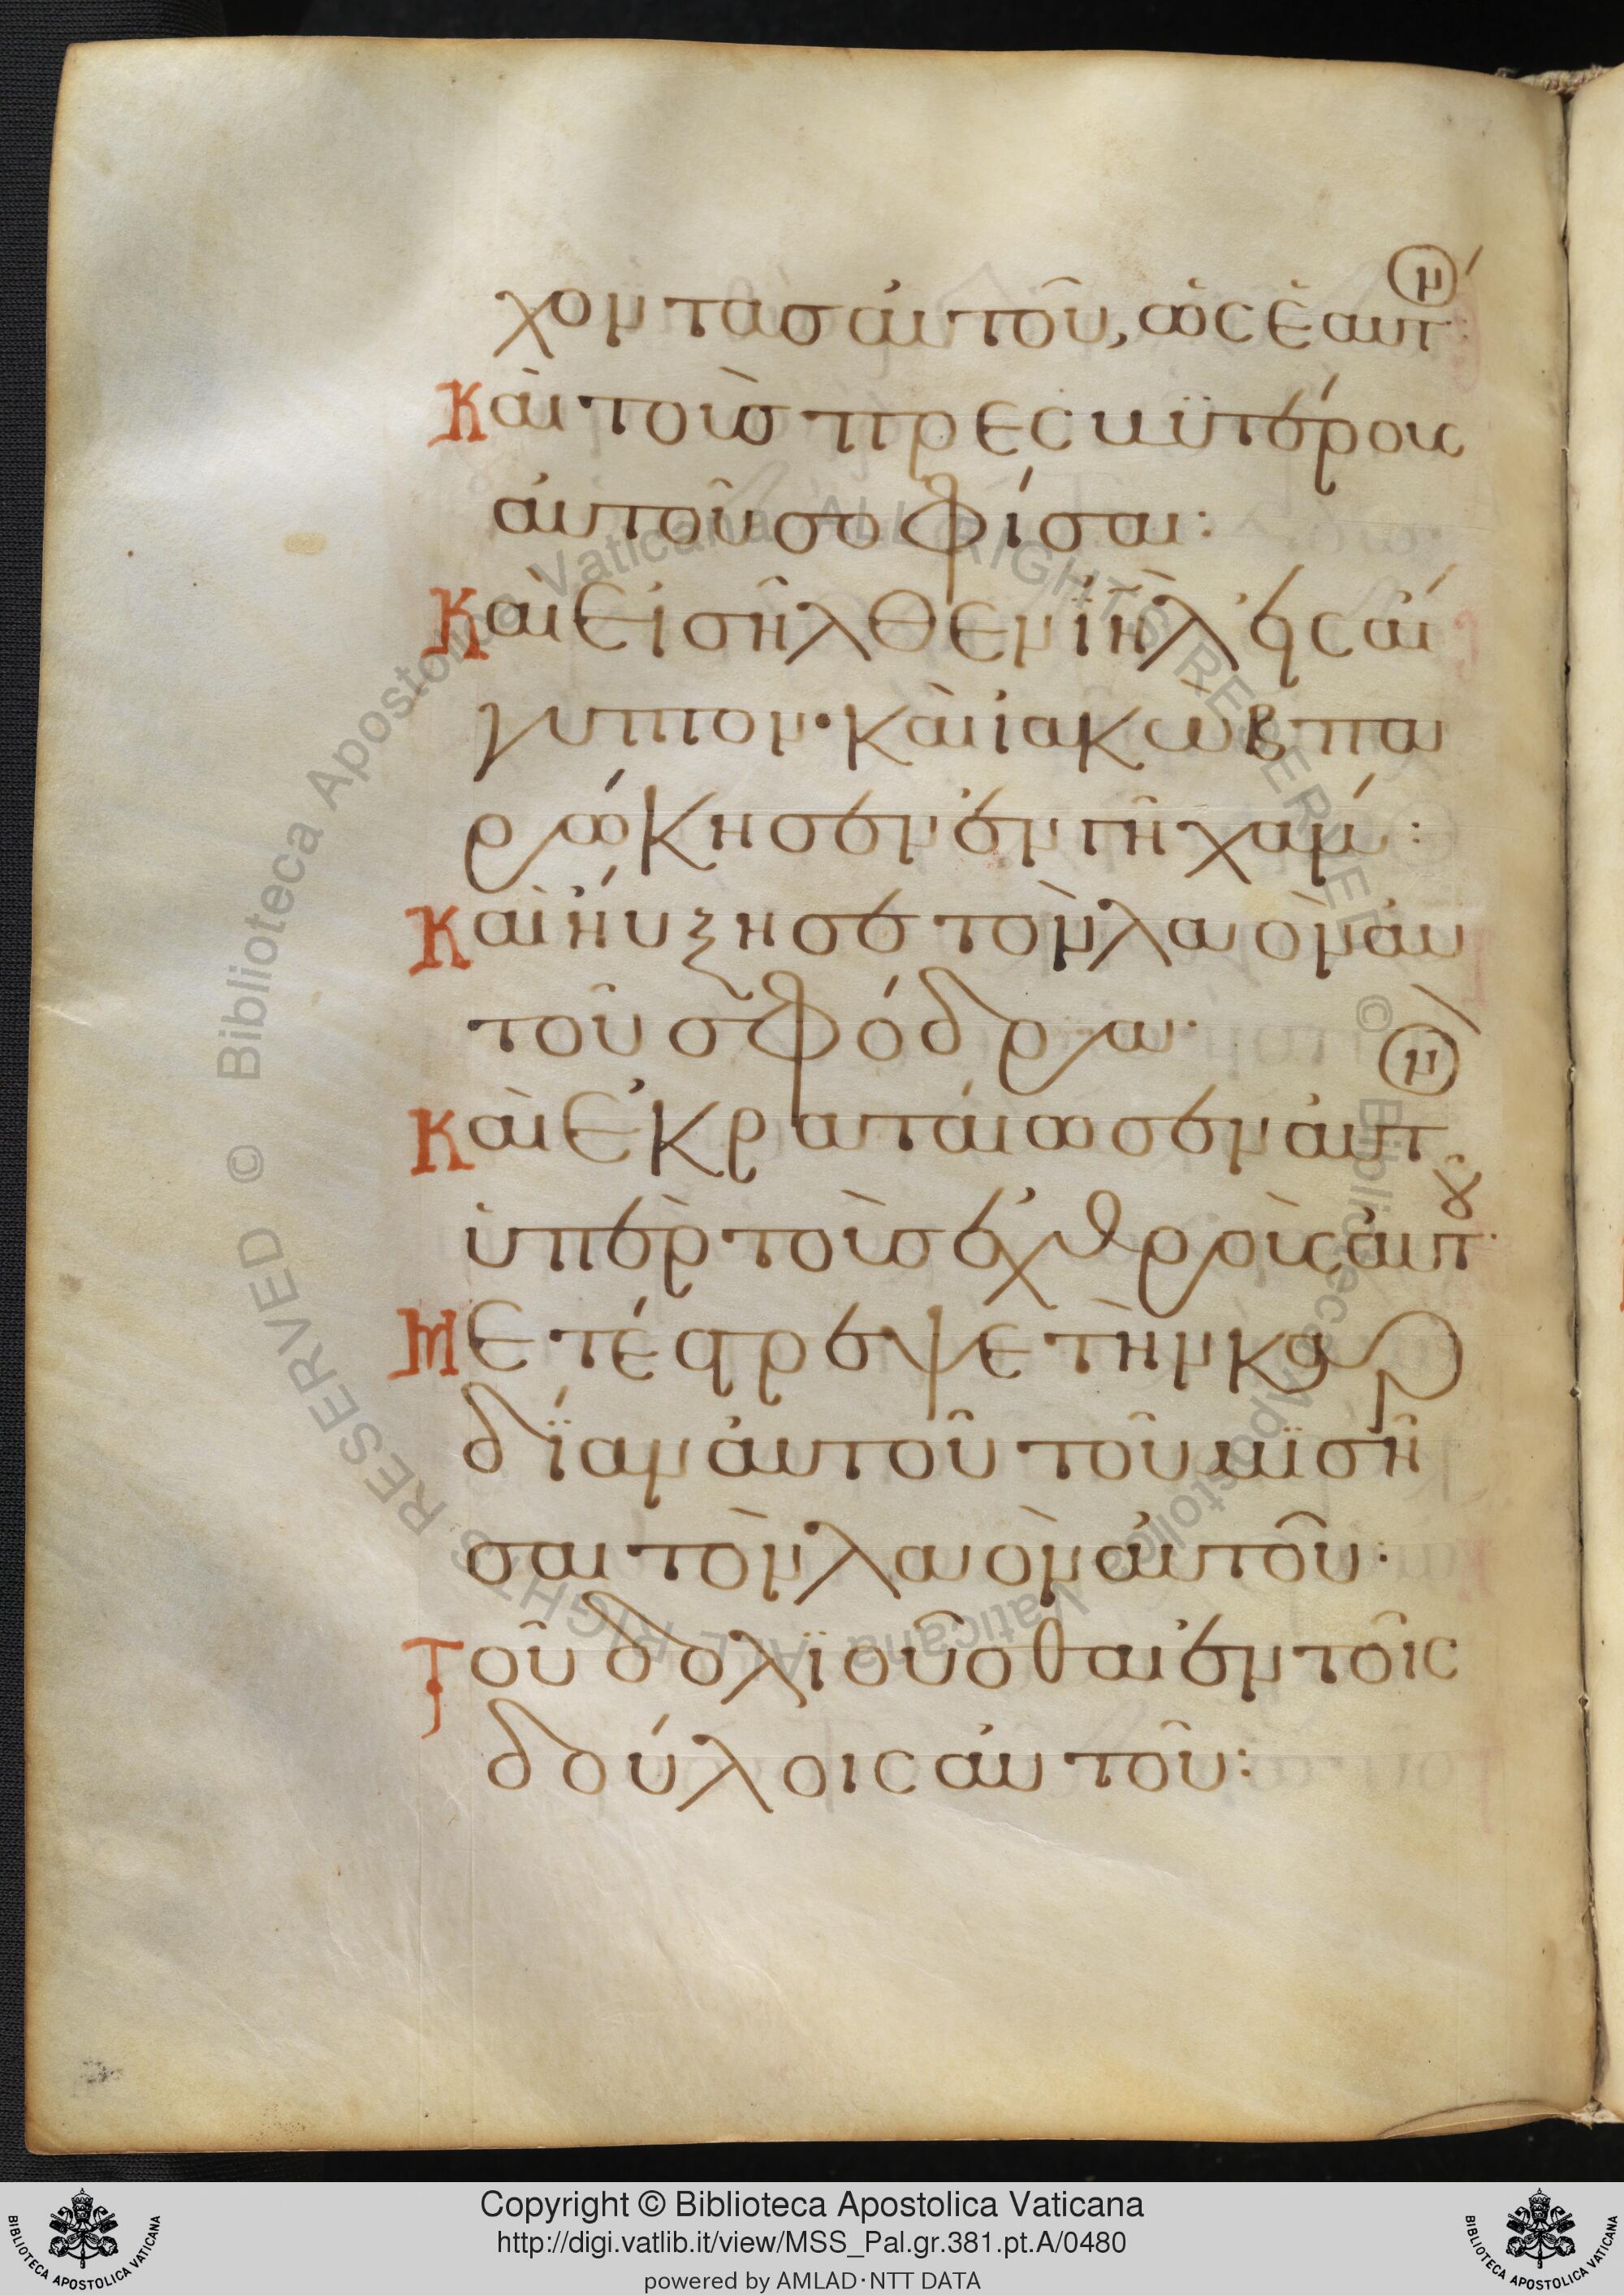 χοντασ ἀυτοῦ, ὡς ἑαυτ(ὸν)
Καὶ τοὺσ πρεσβϋτέρους
ἀυτοῦ σοφίσαι:
Καὶ εἰσῆλθεν ϊη̅λ ἐις ἄι
γυπτον· καὶ ἰακὼβ πα
ρώκησεν ἐν γῆ χάμ:
Καὶ ἤυξησε τὸν λαὸν ἀυ
τοῦ σφόδρα·
Καὶ ἐκραταίωσεν ἀυτ(ὸν)
ὑπὲρ τοὺσ ἐχθροὺς ἀυτ(οῦ)·
Μετέστρεψε τὴν καρ
δΐαν ἀυτοῦ τοῦ μϊσῆ
σαι τὸν λαὸν ἀυτοῦ·
Τοῦ δολϊοῦσθαι ἐν τοῖς
δούλοις ἀυτοῦ:
Copyright © Biblioteca Apostolica Vaticana
http://digi.vatlib.it/view/MSS_Pal.gr.381.pt.A/0480
powered by AMLAD·NTT DATA
BIBLIOTECA APOSTOLICA VATICANA
BIBLIOTECA APOSTOLICA VATICANA
© Biblioteca Apostolica Vaticana ALL RIGHTS RESERVED
© Biblioteca Apostolica Vaticana ALL RIGHTS RESERVED